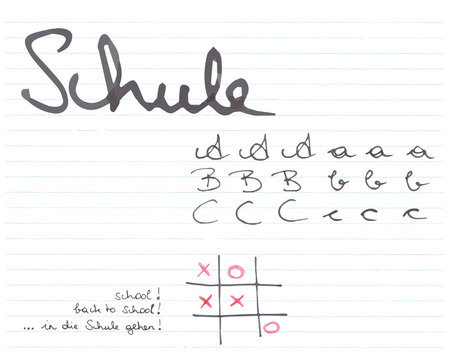 Schule
A A A a a a
B B B b b b
C C C c c c
X O
school!
X X
back to school!
... in die Schule gehen!
O